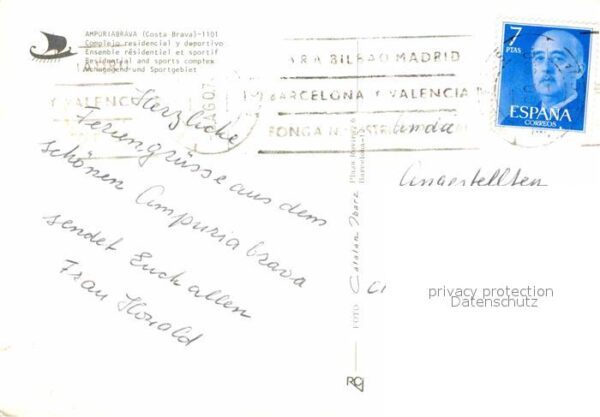 AMPURIABRAVA (Costa Brava)-1101
Complejo residencial y deportivo
Ensemble résidentiel et sportif
Residential and sports complex
Wohngegend und Sportgebiet
Herzliche
Feriengrüsse aus dem
schönen Ampuria brava
sendet Euch allen
Frau Horald
PARA BILBAO MADRID
BARCELONA Y VALENCIA
PONGA
Y VALENCIA
AGO
7
PTAS
ESPAÑA
CORREOS
FOTO Catalan Ibarz
Barcelona-12
Angestellten
privacy protection
Datenschutz